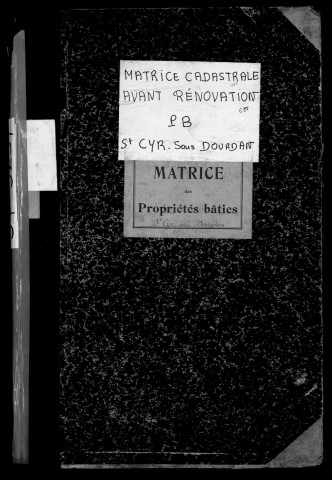 MATRICE CADASTRALE
AVANT RÉNOVATION
PB
St CYR. Sous DOURDAN
MATRICE
des
Propriétés bâties